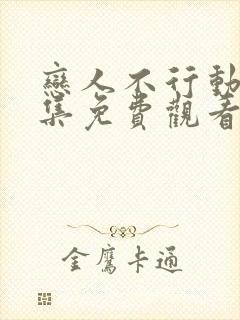 戀人不行動
集免費觀看
金鷹卡通